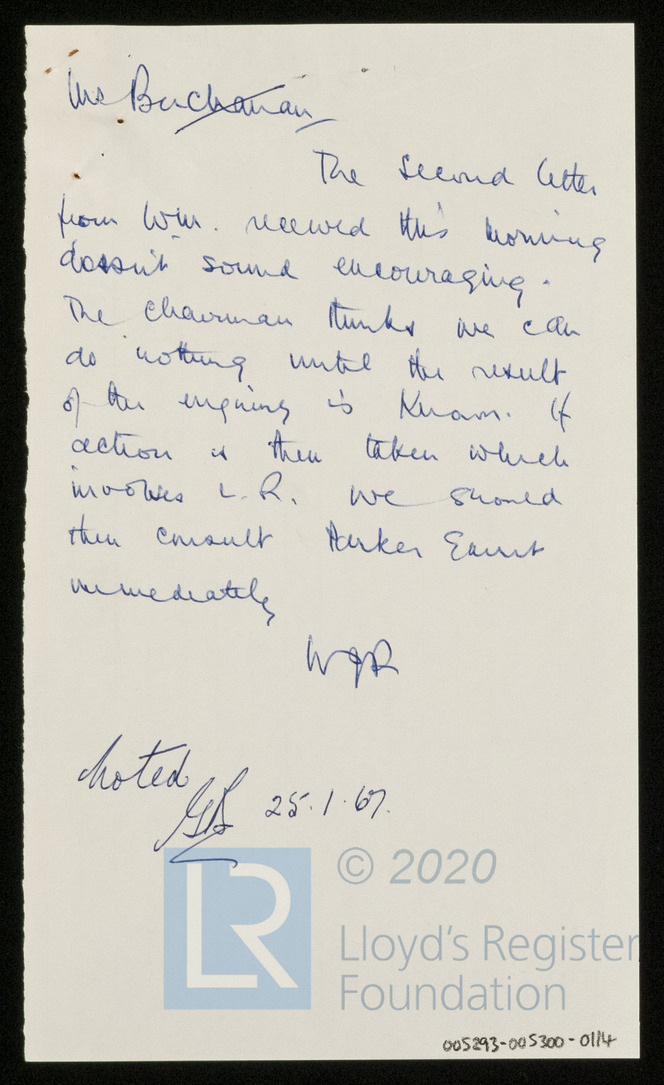 Mr Buchanan
The second letter
from Wm. received this morning
doesn't sound encouraging.
The Chairman thinks we can
do nothing until the result
of the enquiry is known. If
action is then taken which
involves L.R. we should
then consult Parker
immediately
WJR
Noted
GB 25.1.67.
LR © 2020
Lloyd's Register
Foundation
005293-005300-0114